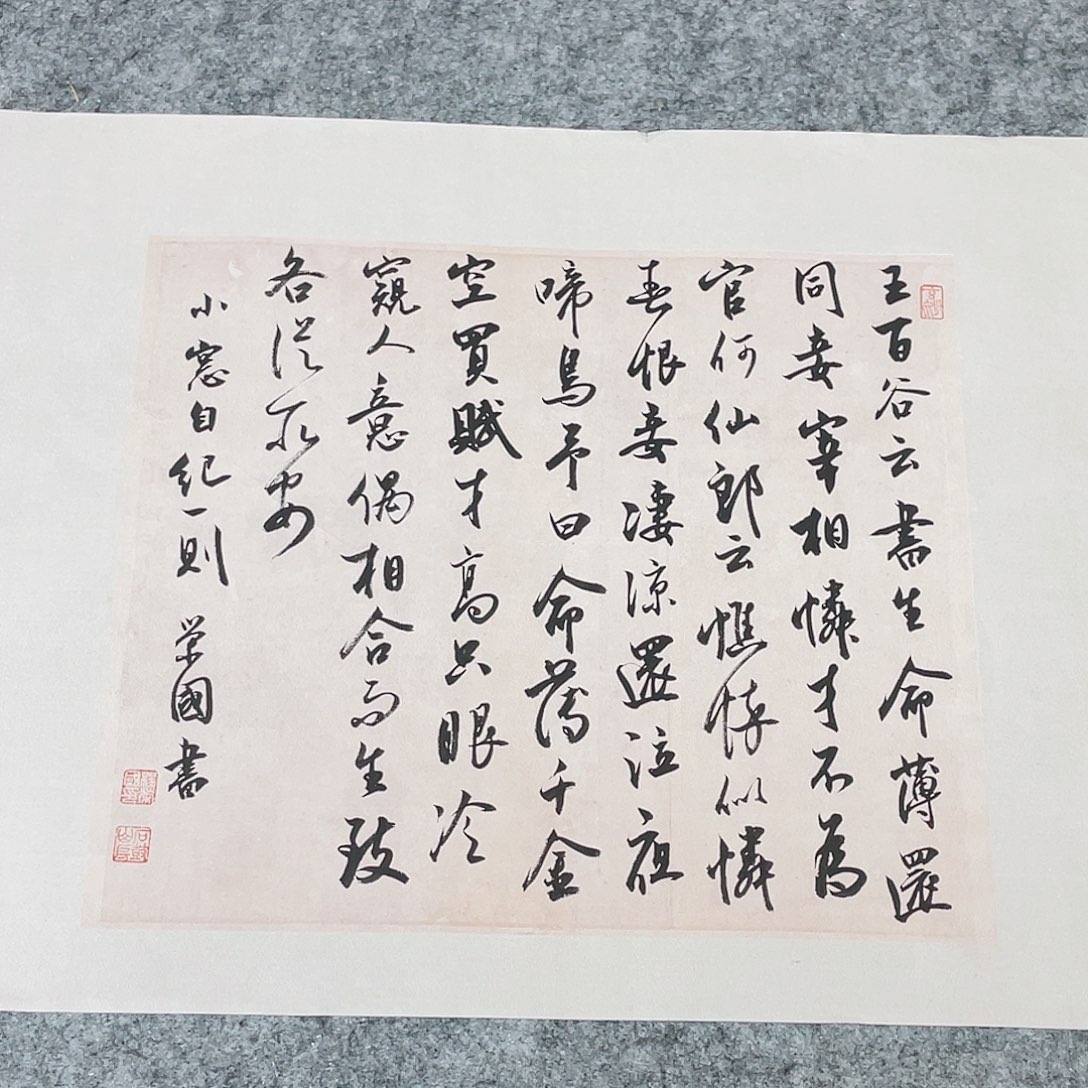 王百谷云書生命薄還
同妾宰相憐才不為
官何仙郎云憔悴似憐
春恨妾淒涼還泣夜
啼烏予曰命薄千金
空買賦才高只眼冷
窺人意偶相合而生致
各從所安
小窓自紀一則 榮國書